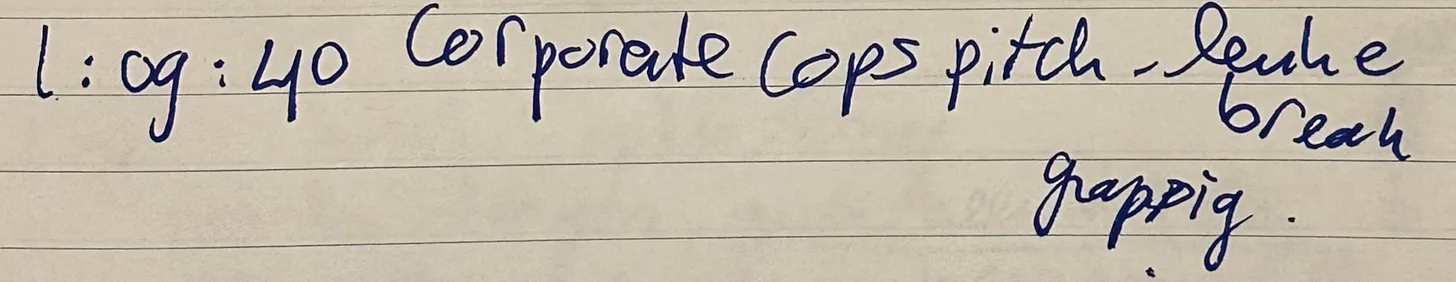 1:09:40 Corporate Cops pitch - leuke
break
grappig.